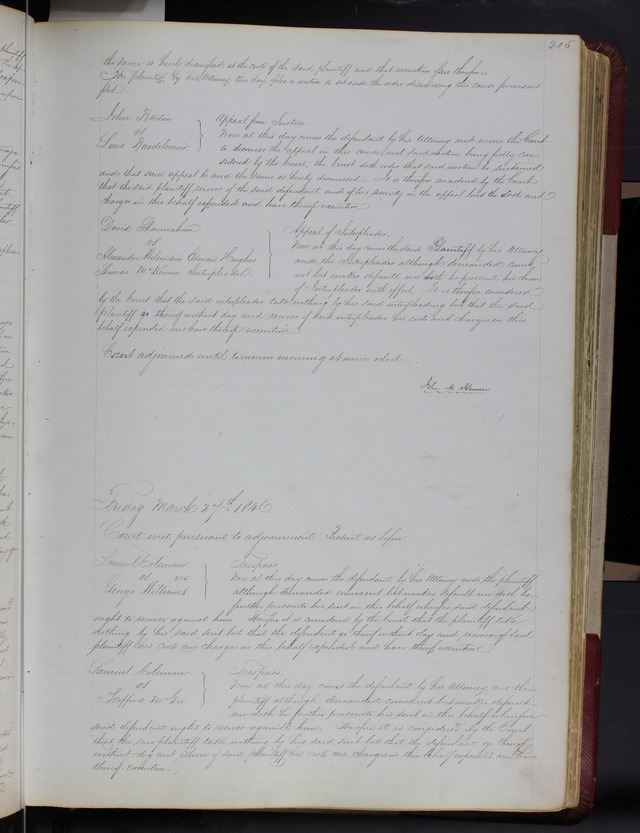 205
the same is hereby dismissed at the costs of the said plaintiff and that execution issue therefor
The plaintiff by his Attorney this day files a motion to set aside the order dismissing this cause
filed
John Barton
vs
Louis
Appeal from Justice
Now at this day comes the defendant by his Attorney and moves the Court
to dismiss the appeal in this cause, and said motion being fully con-
sidered by the Court, the Court doth order that said motion be sustained
and that said appeal be and the same is hereby dismissed. It is therefore considered by the Court
that the said plaintiff recover of the said defendant and of his security in the appeal bond the Costs and
charges in this behalf expended and have thereof execution
David Shanahan
vs
Alexander Wilson and Edward Hughes
Thomas McKenna Interpleader
Appeal of Interpleader
Now at this day comes the said Plaintiff by his Attorney
and the Interpleader although demanded comes
not but makes default nor doth he prosecute his claim
of Interpleader with effect. It is therefore considered
by the Court that the said interpleader take nothing by his said interpleading but that the said
plaintiff go thereof without day and recover of said interpleader his costs and charges in this
behalf expended and have thereof execution
Court adjourned until tomorrow morning at nine oclock
John M.
Friday March 27th 1846
Court met pursuant to adjournment. Present as before
Samuel Coleman
vs
George Williams
Trespass
Now at this day comes the defendant by his Attorney and the plaintiff
although demanded comes not but makes default nor doth he
further prosecute his suit in this behalf wherefore said defendant
ought to recover against him. Therefore it is considered by the Court that the plaintiff take
nothing by his said suit but that the defendant go thereof without day and recover of said
plaintiff his costs and charges in this behalf expended and have thereof execution
Samuel Coleman
vs
Stafford McGee
Trespass
Now at this day comes the defendant by his Attorney, and the
plaintiff although demanded comes not but makes default
nor doth he further prosecute his suit in this behalf wherefore
said defendant ought to recover against him. Therefore it is considered by the Court
that the said plaintiff take nothing by his said suit but that the defendant go thereof
without day and recover of said plaintiff his costs and charges in this behalf expended and have
thereof execution